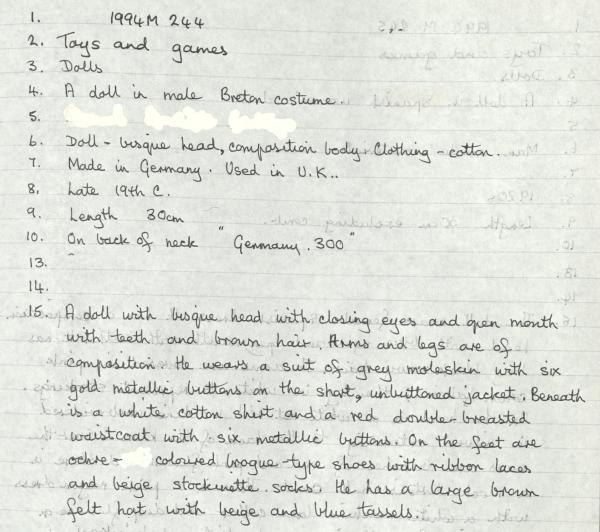 1. 1994M 244
2. Toys and games
3. Dolls
4. A doll in male Breton costume.
5.
6. Doll - bisque head, composition body. Clothing - cotton.
7. Made in Germany. Used in U.K..
8. Late 19th C.
9. Length 30cm
10. On back of neck "Germany. 300"
13.
14.
15. A doll with bisque head with closing eyes and open mouth
with teeth and brown hair. Arms and legs are of
composition. He wears a suit of grey moleskin with six
gold metallic buttons on the short, unbuttoned jacket. Beneath
is a white cotton shirt and a red double-breasted
waistcoat with six metallic buttons. On the feet are
ochre- coloured brogue-type shoes with ribbon laces
and beige stockinette socks. He has a large brown
felt hat with beige and blue tassels.